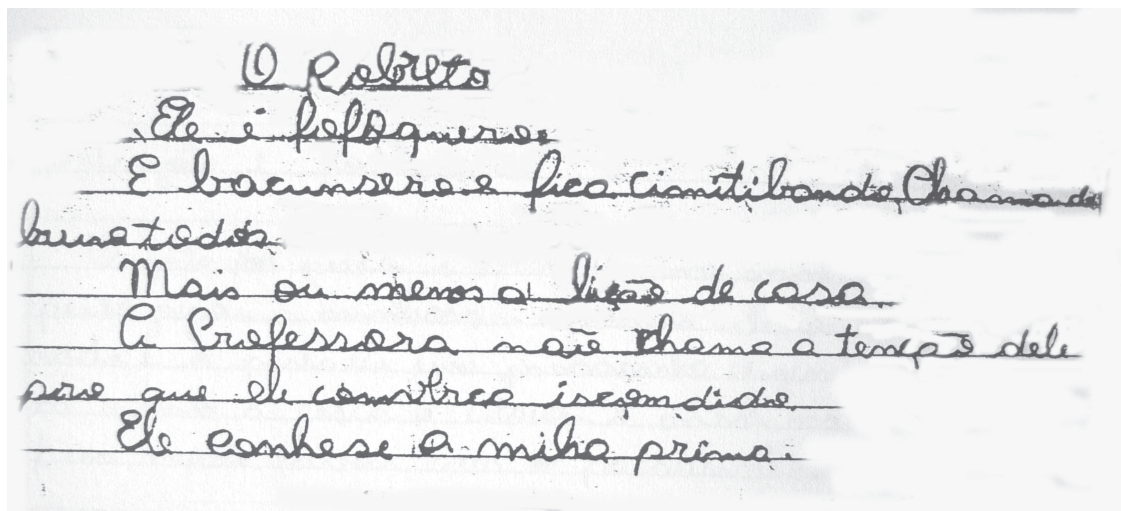 O Roberto
Ele é fofoqueroe
E bacunserae fica cimitibando Chamado
burre todos.
Mais ou menos a lição de casa
A Professora não chama a tenção dele
pore que ele comitreo iscondido
Ele conhese a miha prima.